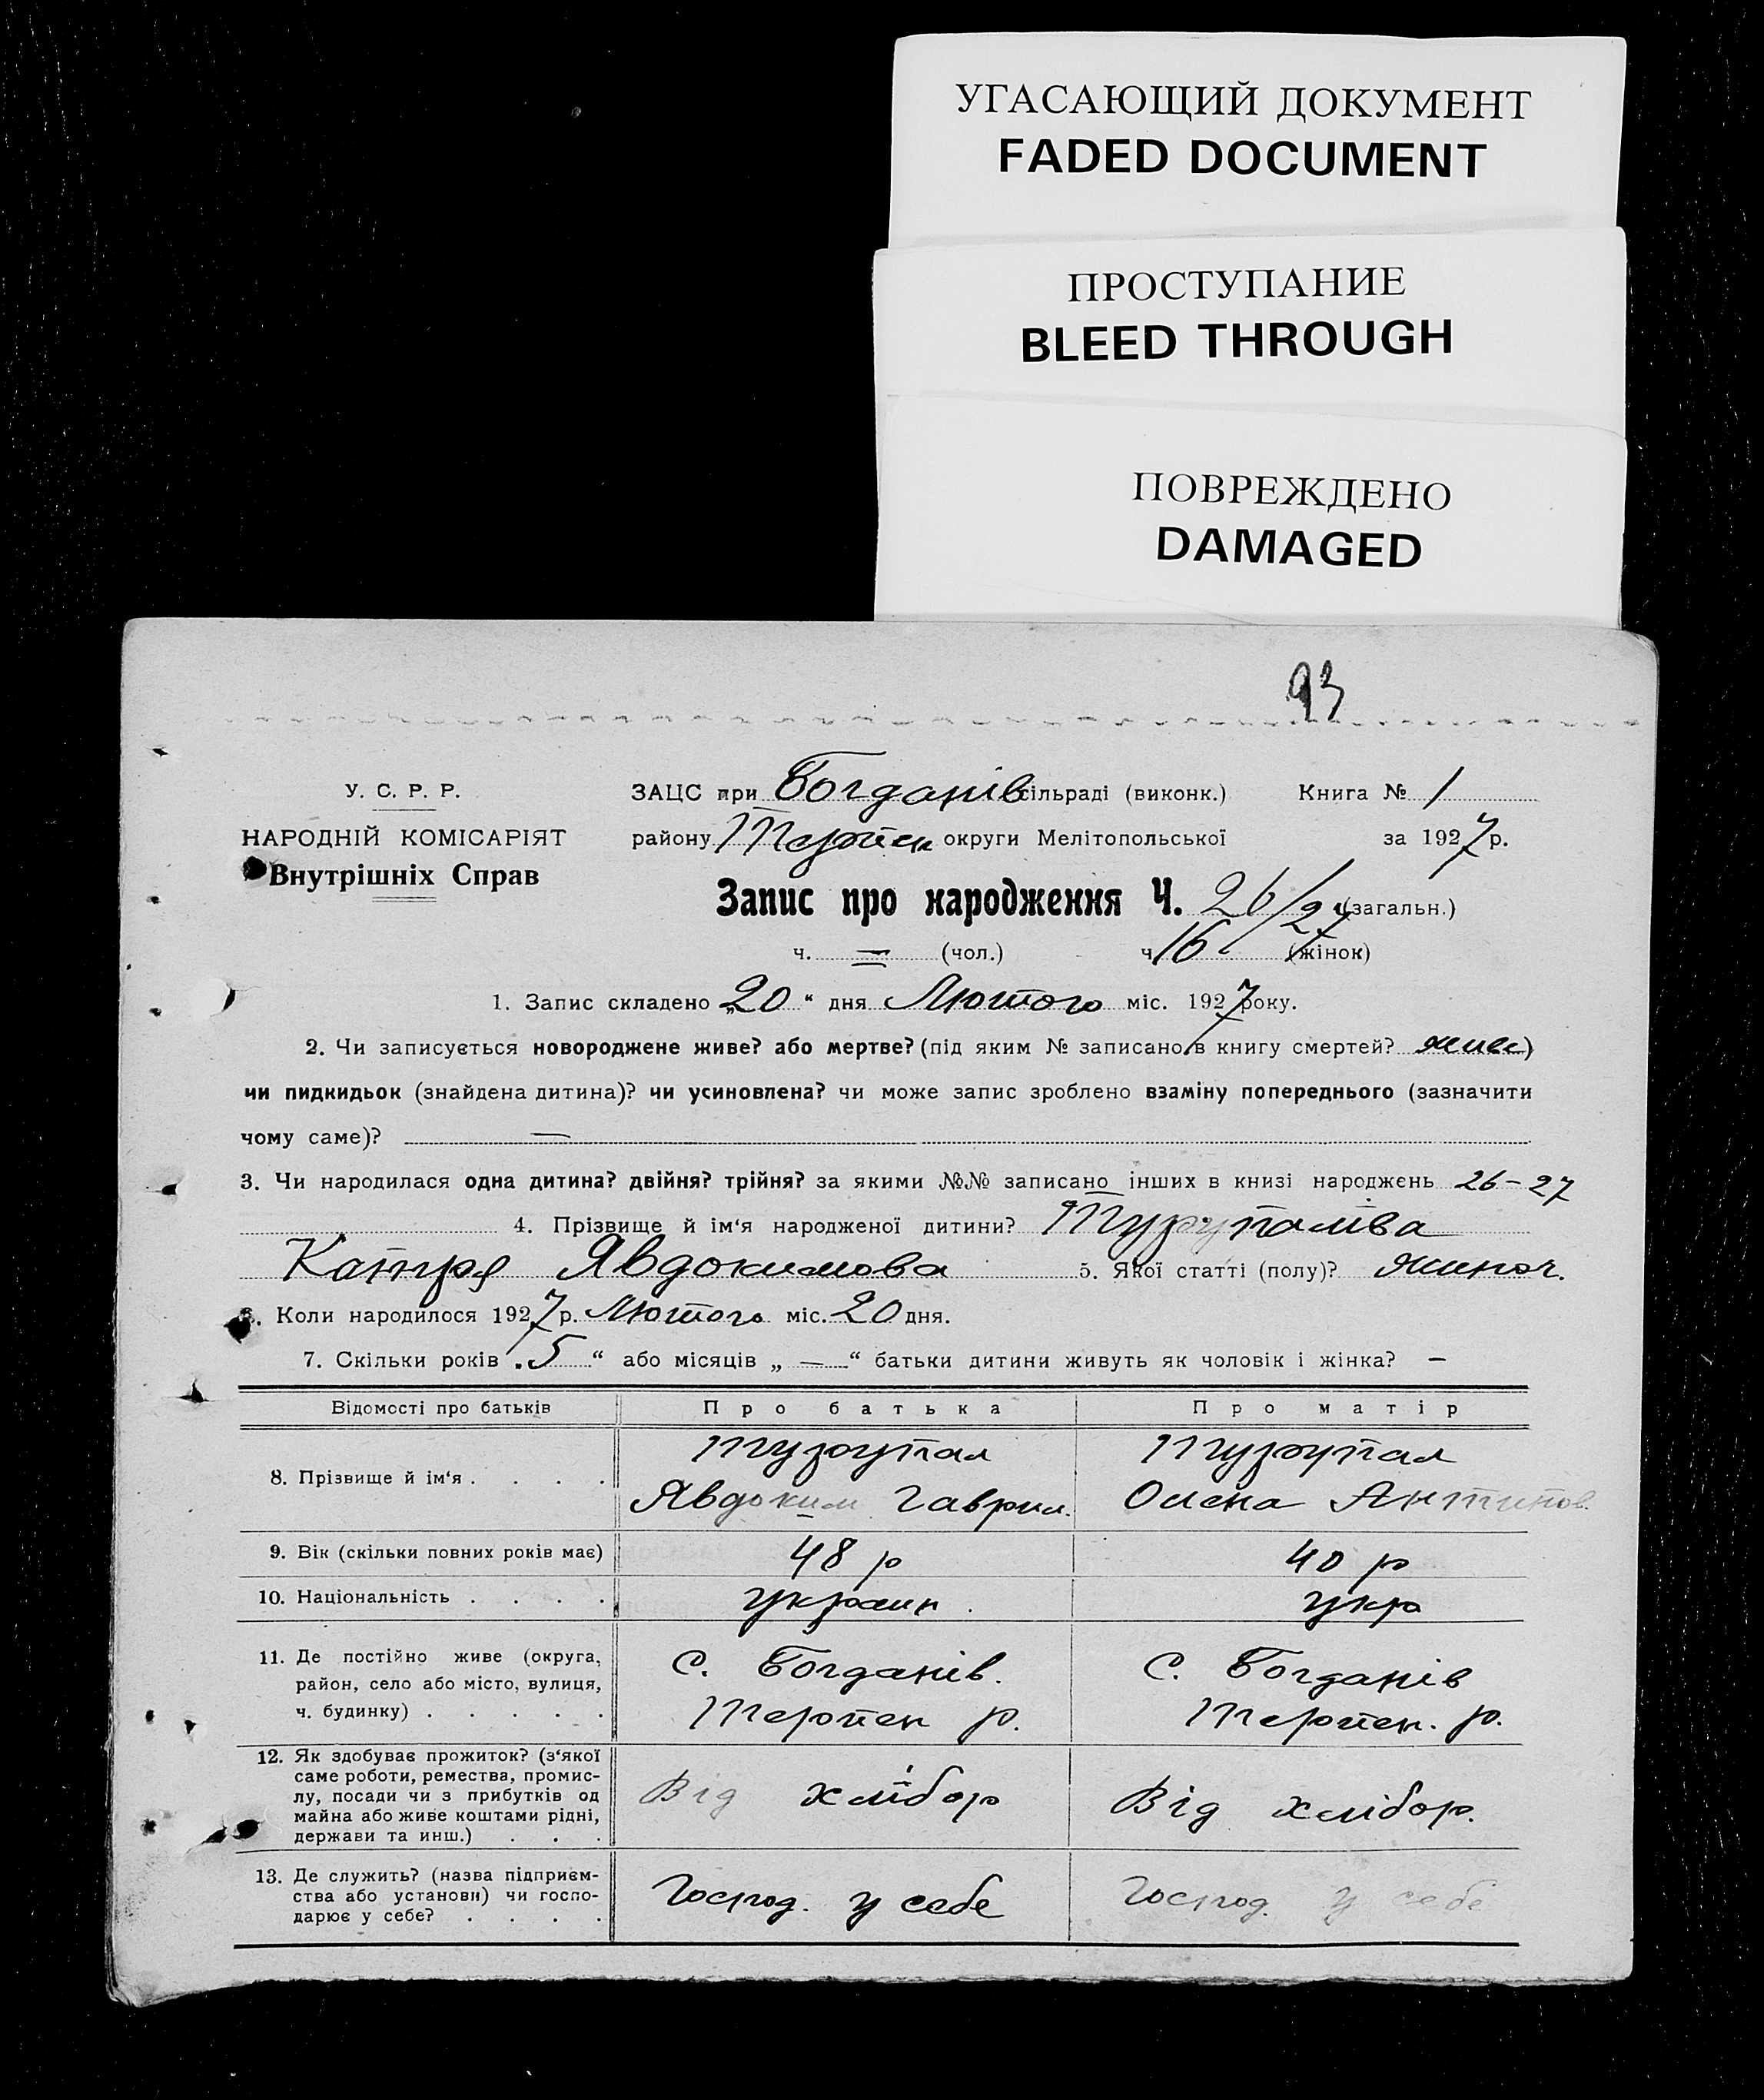 УГАСАЮЩИЙ ДОКУМЕНТ
FADED DOCUMENT
ПРОСТУПАНИЕ
BLEED THROUGH
ПОВРЕЖДЕНО
DAMAGED
93
У. С. Р. Р.
НАРОДНІЙ КОМІСАРІЯТ
Внутрішніх Справ
ЗАЦС при Богданів сільраді (виконк.) Книга № 1
району Терпен округи Мелітопольської за 1927 р.
Запис про народження Ч. 26/27 (загальн.)
ч. — (чол.) ч. 16 (жінок)
1. Запис складено „20“ дня Лютого міс. 1927 року.
2. Чи записується новороджене живе? або мертве? (під яким № записано в книгу смертей? живе)
чи пидкидьок (знайдена дитина)? чи усиновлена? чи може запис зроблено взаміну попереднього (зазначити
чому саме)? —
3. Чи народилася одна дитина? двійня? трійня? за якими №№ записано інших в книзі народжень 26-27
4. Прізвище й ім‘я народженої дитини? Турупаліва
Катря Явдокимова 5. Якої статті (полу)? жиноч.
6. Коли народилося 1927 р. Лютого міс. 20 дня.
7. Скільки років „5“ або місяців „—“ батьки дитини живуть як чоловік і жінка? —
Відомості про батьків Про батька Про матір
8. Прізвище й ім‘я . . . .
Турупал
Явдоким Гаврил.
Турупал
Олена Антипов.
9. Вік (скільки повних років має) 48 р 40 р
10. Національність . . . . украин. укр
11. Де постійно живе (округа,
район, село або місто, вулиця,
ч. будинку) . . . . .
С. Богданів.
Терпен р.
С. Богданів
Терпен. р.
12. Як здобуває прожиток? (з‘якої
саме роботи, ремества, промис-
лу, посади чи з прибутків од
майна або живе коштами рідні,
держави та инш.) . . .
Від хлібор
Від хлібор.
13. Де служить? (назва підприєм-
ства або установи) чи госпо-
дарює у себе? . . . .
Господ. у себе
Господ. у себе